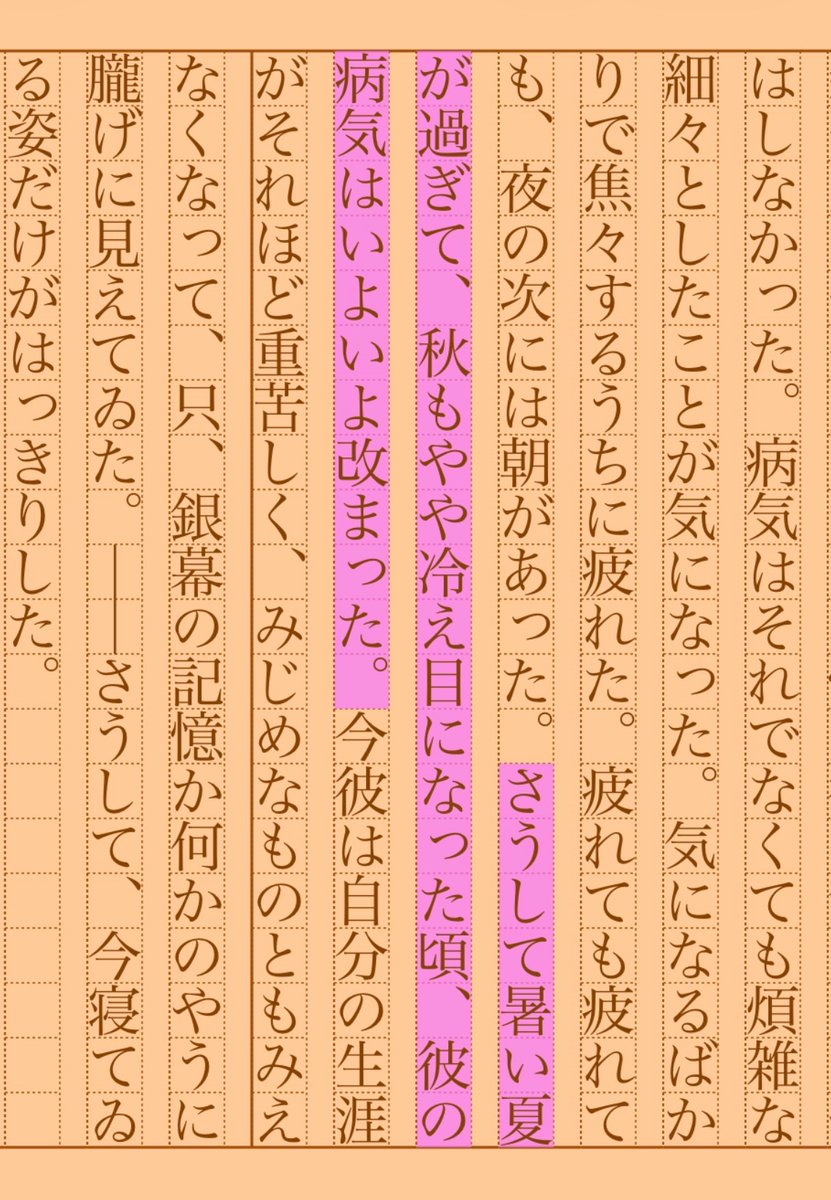 はしなかった。病気はそれでなくても煩雑な
細々としたことが気になった。気になるばか
りで焦々するうちに疲れた。疲れても疲れて
も、夜の次には朝があった。さうして暑い夏
が過ぎて、秋もやや冷え目になった頃、彼の
病気はいよいよ改まった。今彼は自分の生涯
がそれほど重苦しく、みじめなものともみえ
なくなって、只、銀幕の記憶か何かのやうに
朧げに見えてゐた。――さうして、今寝てゐ
る姿だけがはっきりした。